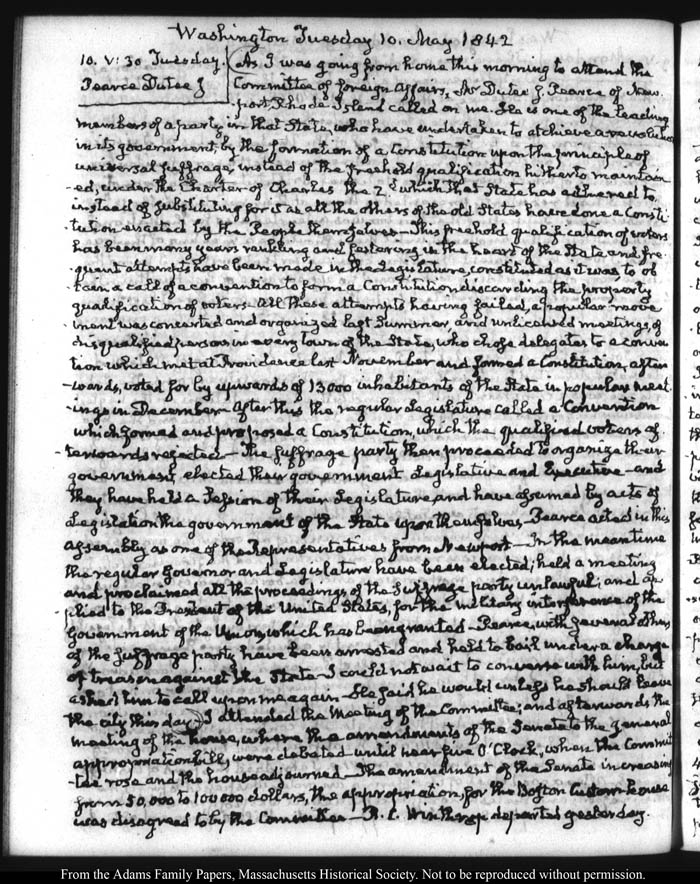 Washington Tuesday 10. May 1842
10. V: 30 Tuesday.
Pearce Dutee J
As I was going from home this morning to attend the
Committee of foreign Affairs, Mr Dutee J. Pearce of New-
port Rhode Island called on me. He is one of the leading
members of a party in that State, who have undertaken to atchieve a revolution
in its government by the formation of a Constitution upon the principle of
universal suffrage, instead of the freehold qualification hitherto maintain
-ed, under the Charter of Charles the 2d which that State has adhered to
instead of substituting for it as all the others of the old States have done a Consti-
-tution enacted by the People themselves— This freehold qualification of voters
has been many years rankling and festering in the heart of the State and fre-
-quent attempts have been made in the Legislature, constituted as it was to ob
-tain a call of a convention to form a Constitution discarding the property
qualification of voters. All these attempts having failed, a popular move
-ment was concerted and organized last Summer, and unlicensed meetings, of
disqualified persons in every town of the State, who chose delegates to a conven
-tion which met at Providence last November and formed a Constitution, after
-wards, voted for by upwards of 13000 inhabitants of the State in popular meet
-ings in December— After this the regular Legislature called a Convention
which formed and proposed a Constitution, which the qualified voters af
-terwards rejected— The suffrage party then proceeded to organize their
government, elected their government Legislative and Executive—and
they have held a Session of their Legislature, and have assumed by acts of
Legislation the government of the State upon themselves— Pearce acted in this
Assembly as one of the Representatives from Newport— In the meantime
the regular Governor and Legislature have been elected; held a meeting
and proclaimed all the proceedings of the suffrage party unlawful; and ap
-plied to the President of the United States, for the military interference of the
Government of the Union, which has been granted— Pearce, with several others
of the suffrage party have been arrested and held to bail under a charge
of treason against the State— I could not wait to converse with him, but
asked him to call upon me again— He said he would unless he should leave
the city this day— I attended the Meeting of the Committee; and afterwards the
meeting of the house, where the amendments of the Senate to the general
appropriation bill, were debated until near five O'Clock, when the Commit
-tee rose and the house adjourned— The amendment of the Senate increasing
from 50,000 to 100000 dollars, the appropriation, for the Boston Custom-house
was disagreed to by the Committee— R. C. Winthrop departed yesterday.
From the Adams Family Papers, Massachusetts Historical Society. Not to be reproduced without permission.